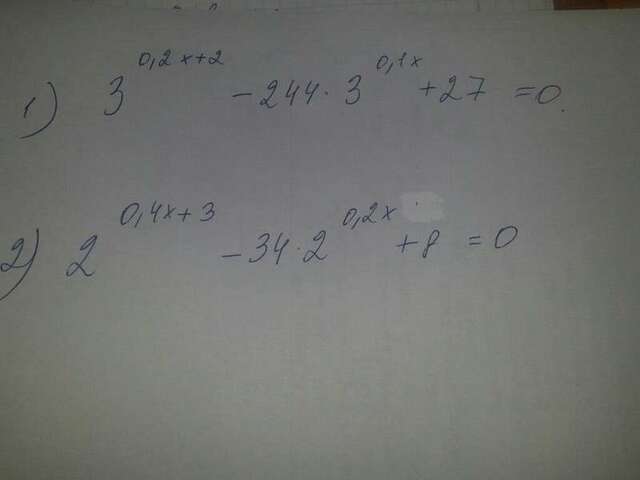 1) 3^{0,2x+2} - 244 · 3^{0,1x} + 27 = 0.
2) 2^{0,4x+3} - 34 · 2^{0,2x} + 8 = 0